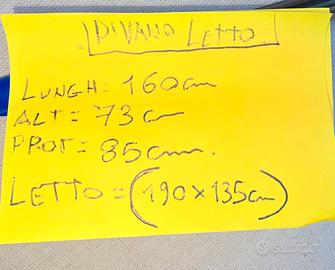 DIVANO LETTO
LUNGH=160cm
ALT=73cm
PROF=85cm.
LETTO=(190x135cm)
subito